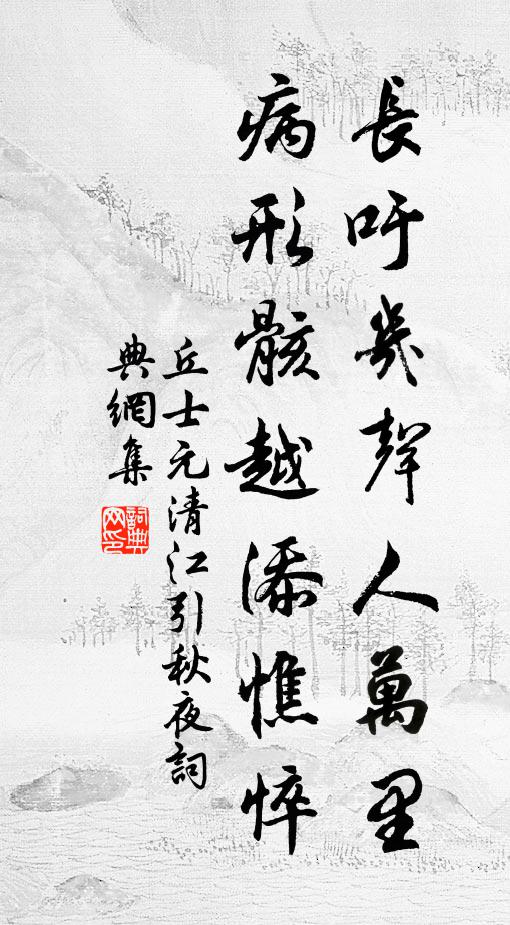 長吁幾聲人萬里
病形骸越添憔悴
丘士元清江引秋夜詞
典網集
詞典網印